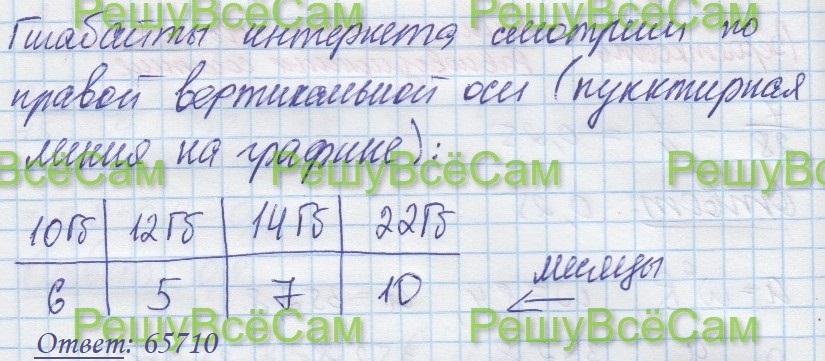 РешуВсёСам РешуВсёСам
Гигабайты интернета смотрим по
правой вертикальной оси (пунктирная
линия на графике):
РешуВсёСам РешуВсёСам РешуВсёСам
10Гб 12Гб 14Гб 22Гб
6 5 7 10
месяцы
РешуВсёСам РешуВсёСам
Ответ: 65710